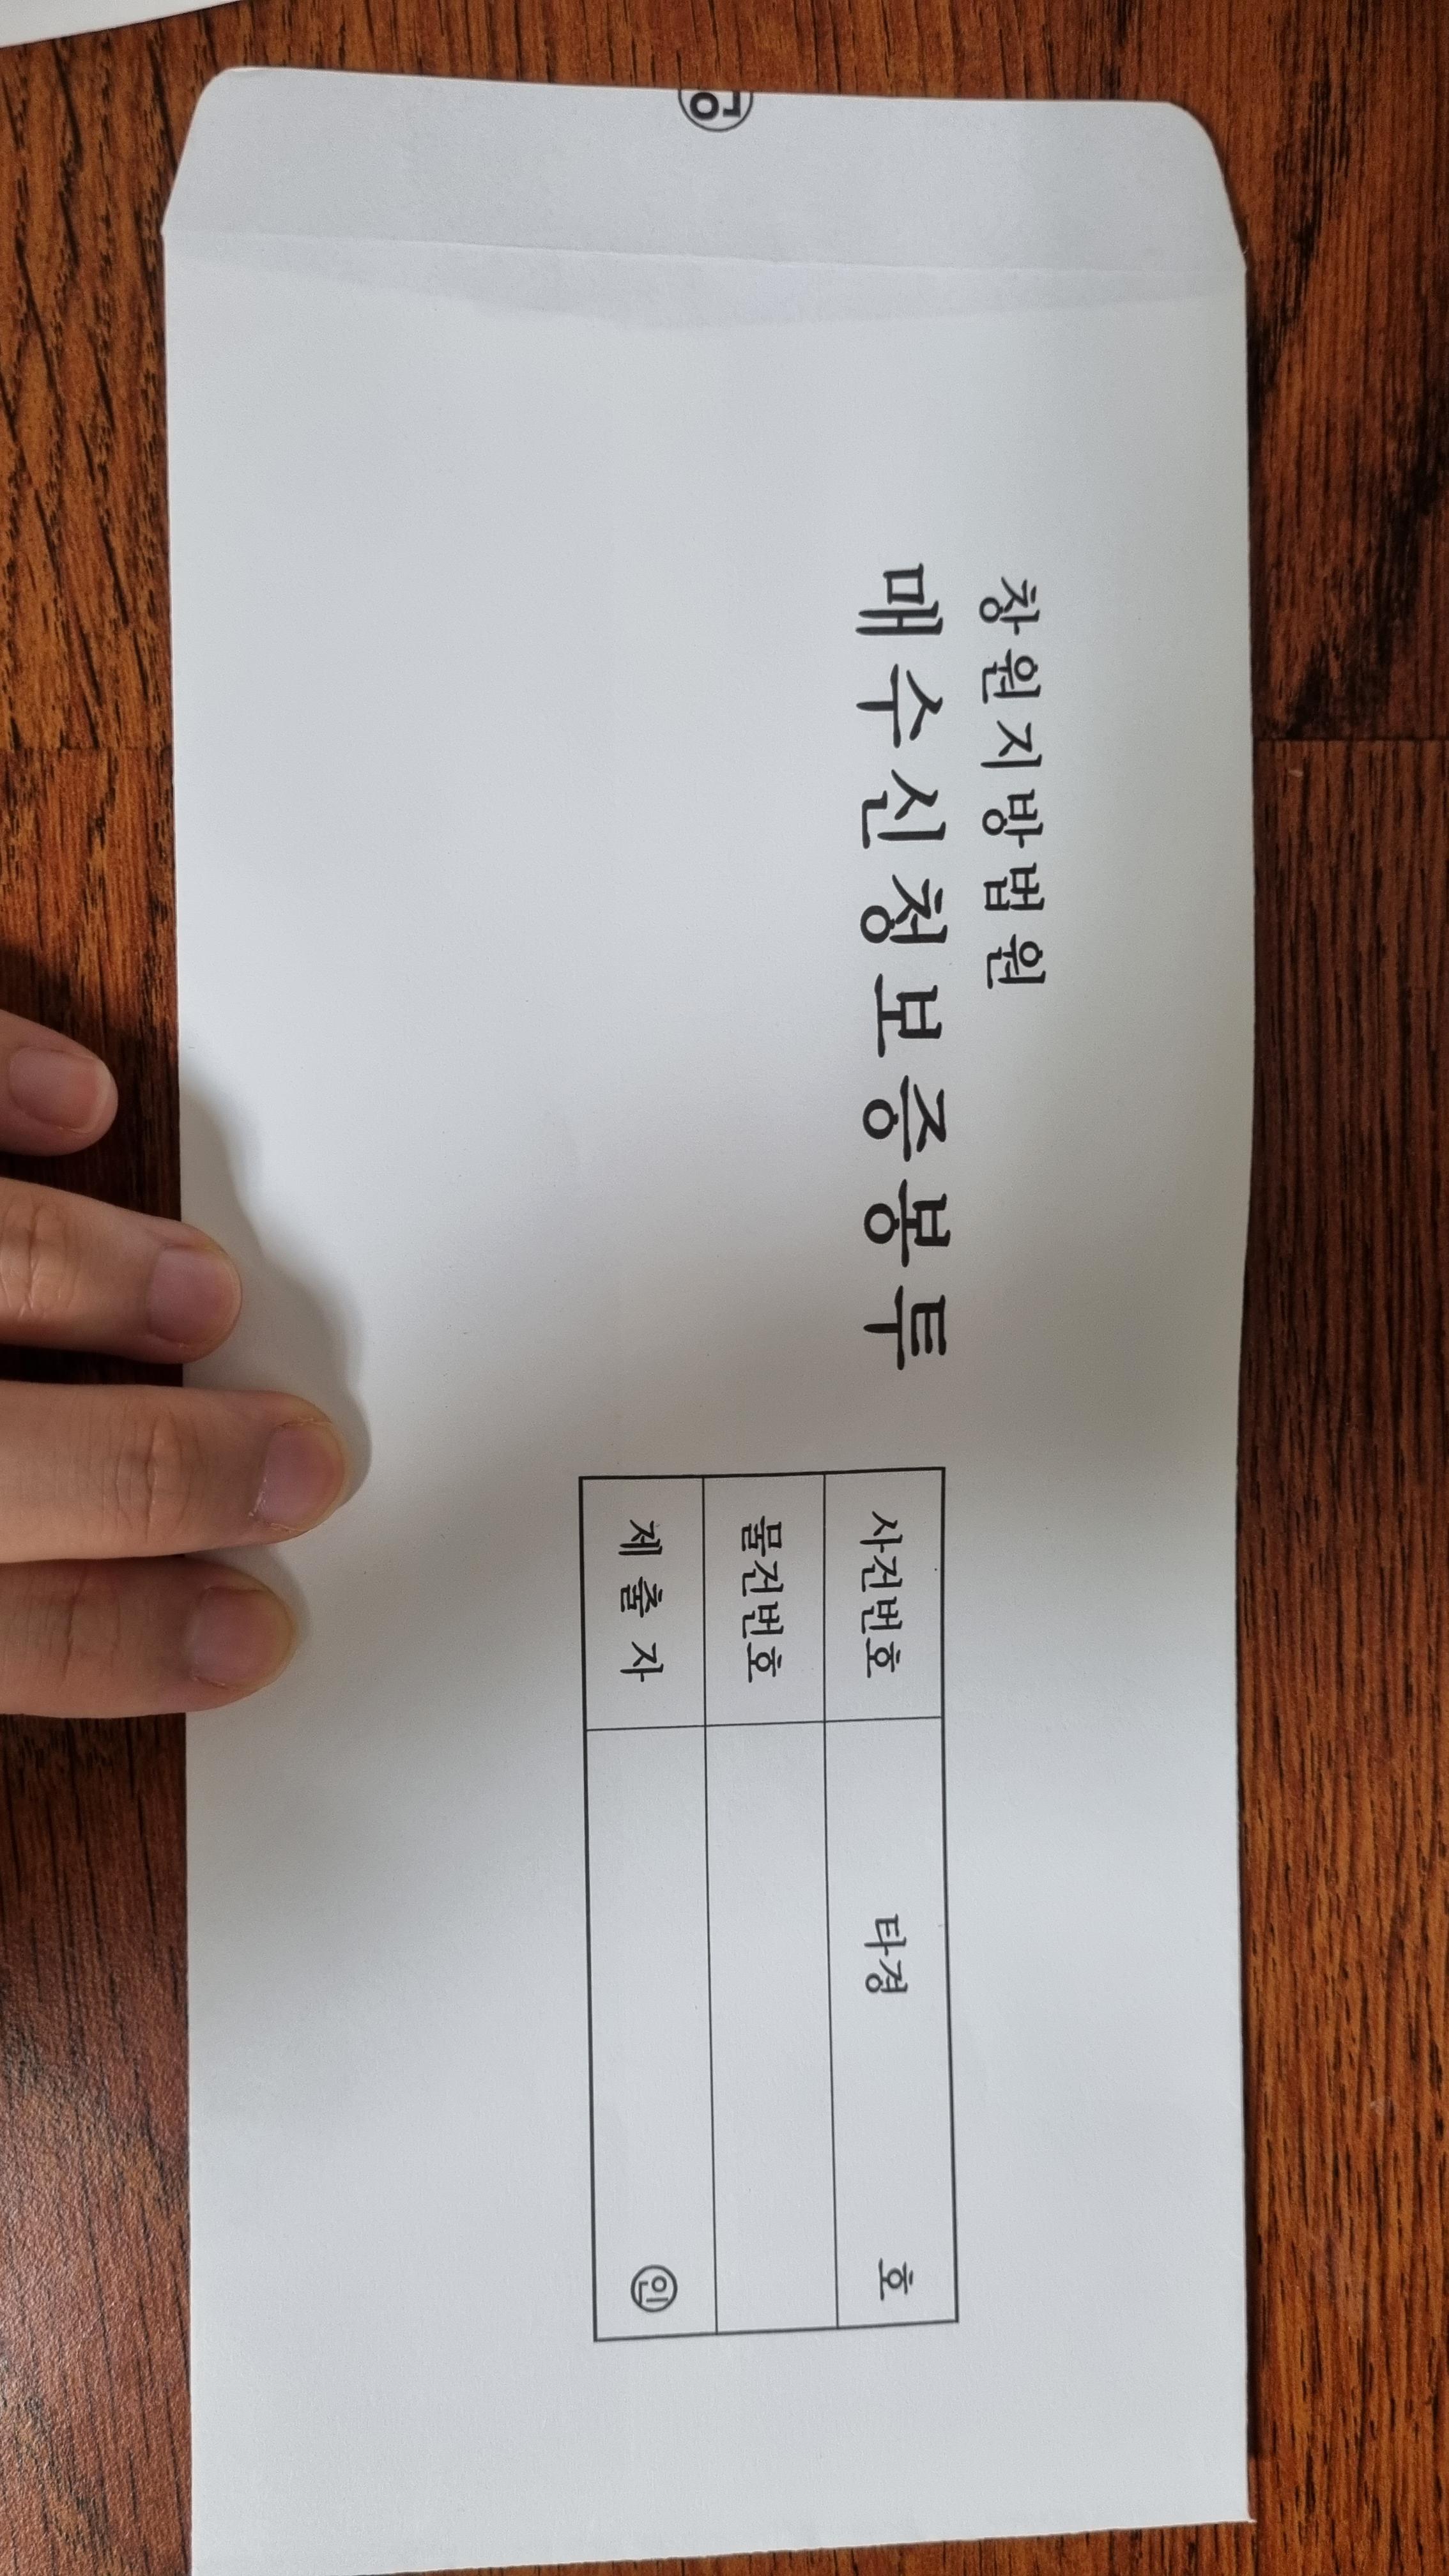 창원지방법원
매수신청보증봉투
사건번호 타경 호
물건번호
제 출 자 ㊞